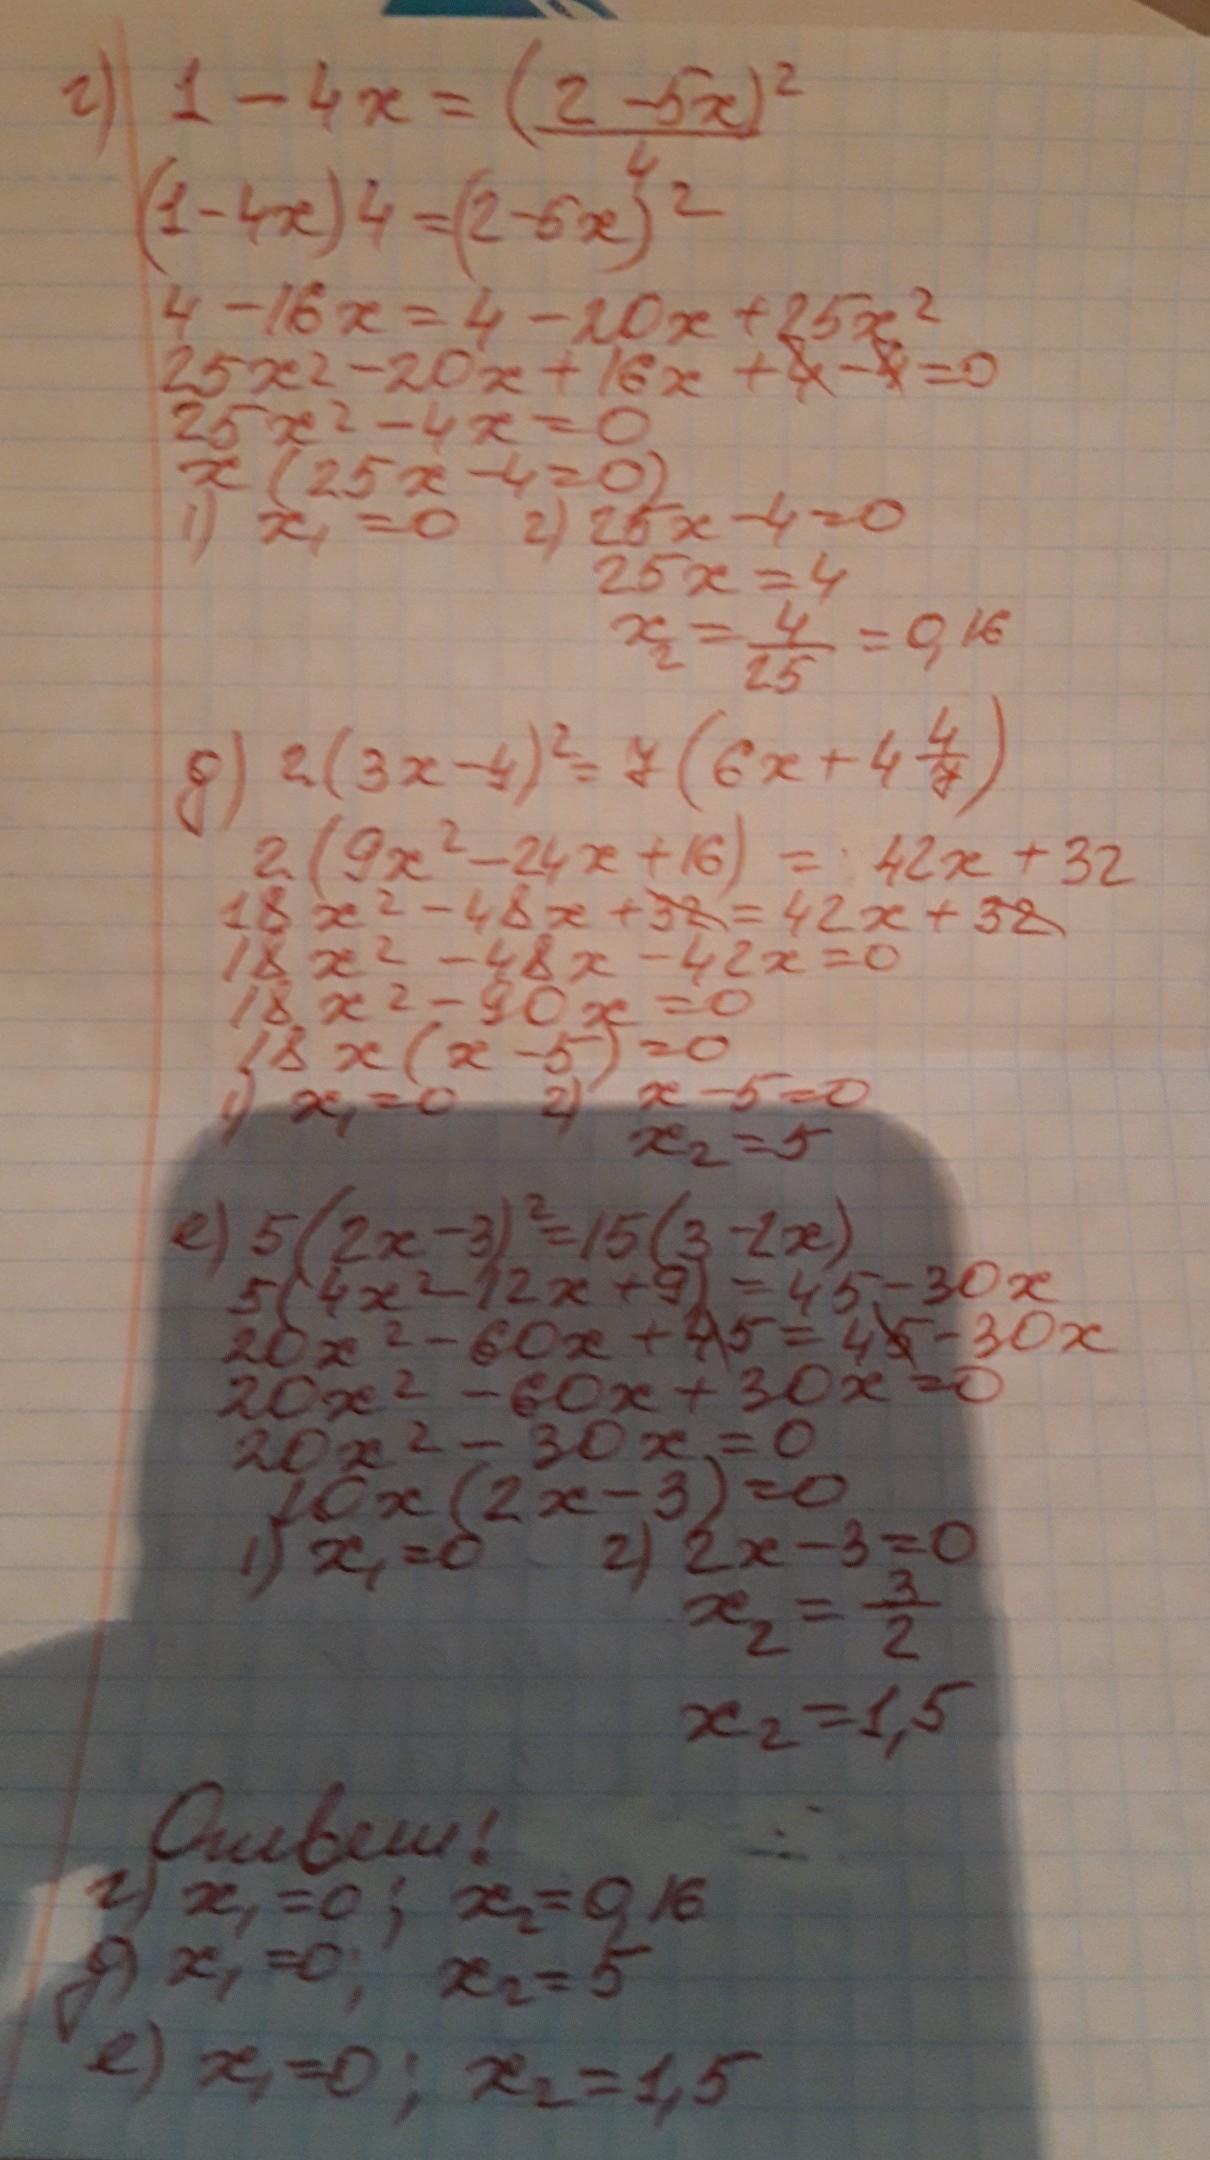 г) 1 - 4x = (2 - 5x)² / 4
(1 - 4x) 4 = (2 - 5x)²
4 - 16x = 4 - 20x + 25x²
25x² - 20x + 16x + 4 - 4 = 0
25x² - 4x = 0
x (25x - 4 = 0)
1) x₁ = 0 2) 25x - 4 = 0
25x = 4
x₂ = 4/25 = 0,16
д) 2(3x - 4)² = 7(6x + 4 4/7)
2(9x² - 24x + 16) = 42x + 32
18x² - 48x + 32 = 42x + 32
18x² - 48x - 42x = 0
18x² - 90x = 0
18x(x - 5) = 0
1) x₁ = 0 2) x - 5 = 0
x₂ = 5
е) 5(2x - 3)² = 15(3 - 2x)
5(4x² - 12x + 9) = 45 - 30x
20x² - 60x + 45 = 45 - 30x
20x² - 60x + 30x = 0
20x² - 30x = 0
10x(2x - 3) = 0
1) x₁ = 0 2) 2x - 3 = 0
x₂ = 3/2
x₂ = 1,5
Ответ!
г) x₁ = 0; x₂ = 0,16
д) x₁ = 0; x₂ = 5
е) x₁ = 0; x₂ = 1,5